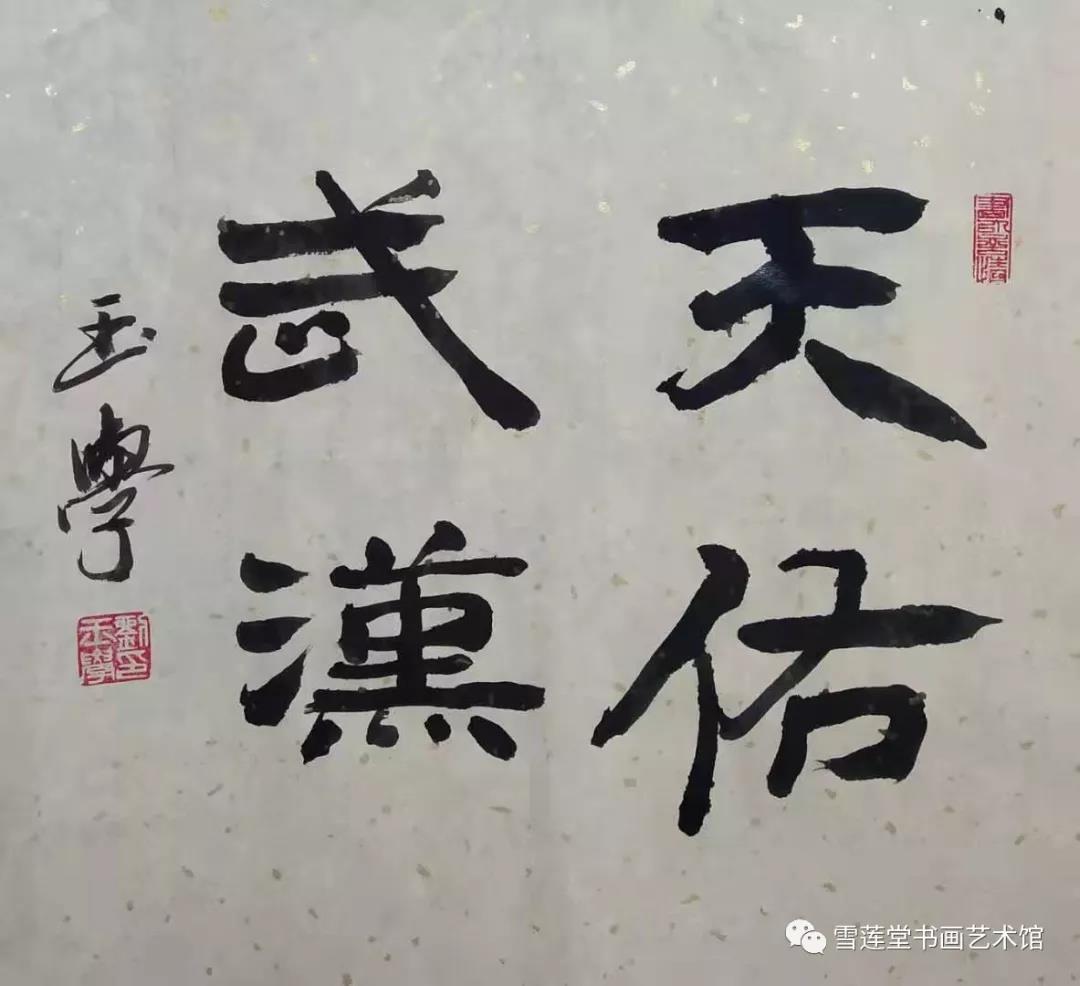 天佑
武漢
玉學
劉印
玉學
雪莲堂书画艺术馆